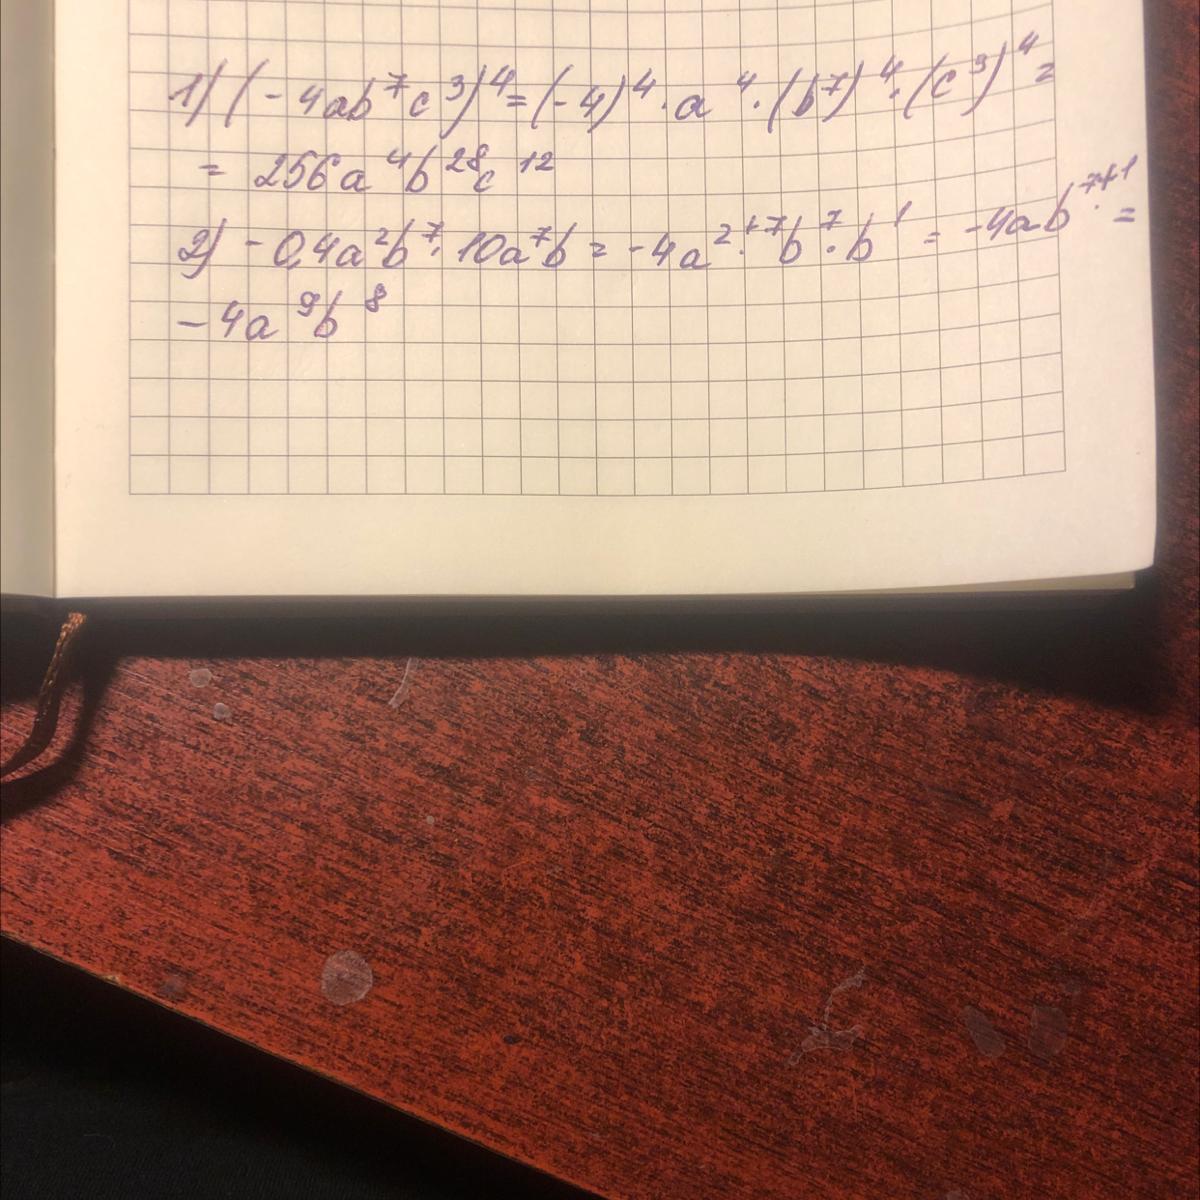 1) (-4ab⁷c³)⁴=(-4)⁴·a⁴·(b⁷)⁴·(c³)⁴=
= 256a⁴b²⁸c¹²
2) -0,4a²b⁷·10a⁷b=-4a²⁺⁷b⁷·b¹ = -4ab⁷⁺¹=
-4a⁹b⁸